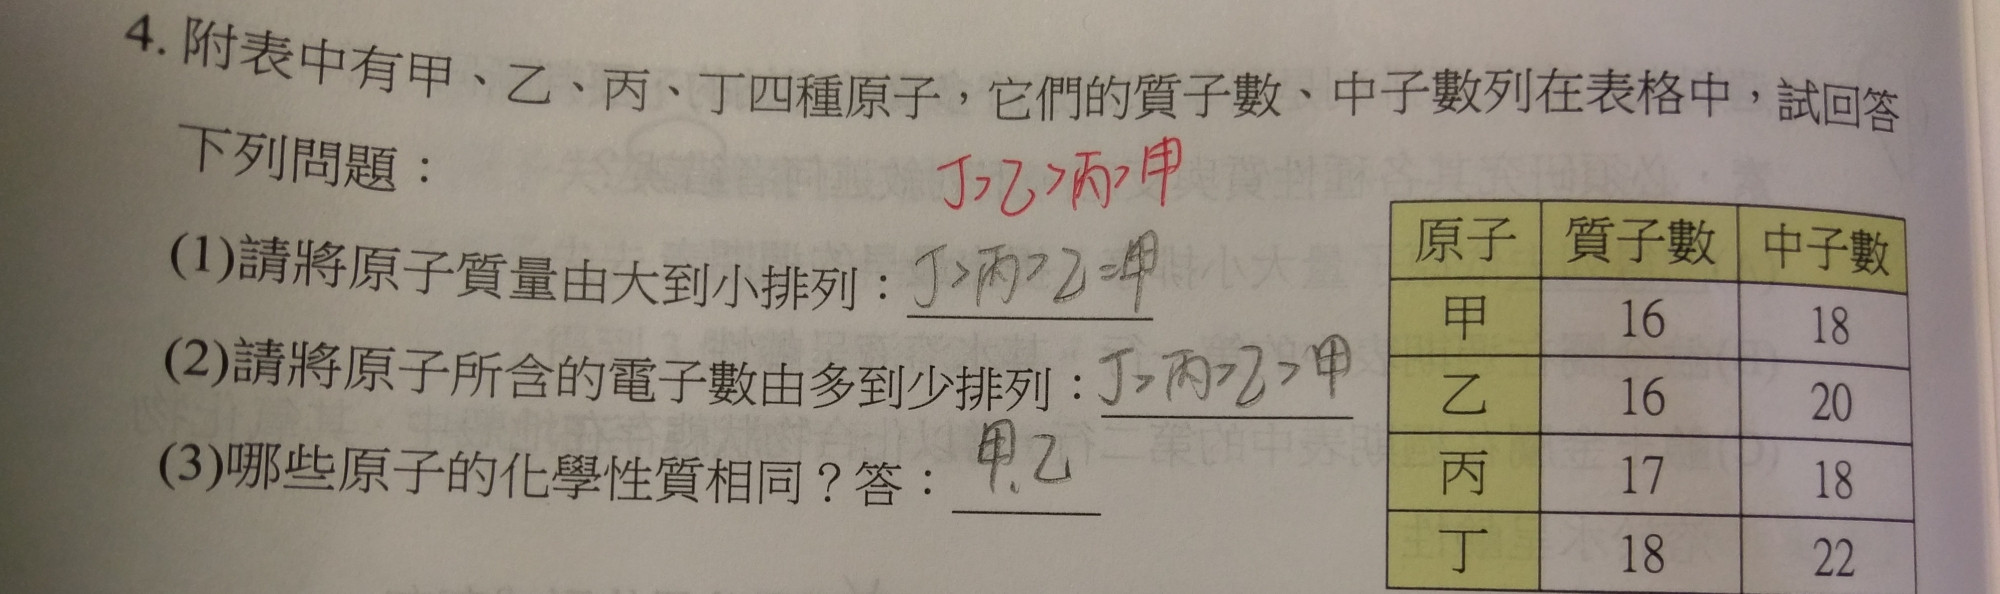 4. 附表中有甲、乙、丙、丁四種原子，它們的質子數、中子數列在表格中，試回答
下列問題：
丁>乙>丙>甲
(1)請將原子質量由大到小排列：丁>丙>乙=甲
(2)請將原子所含的電子數由多到少排列：丁>丙>乙>甲
(3)哪些原子的化學性質相同？答：甲、乙
原子 質子數 中子數
甲 16 18
乙 16 20
丙 17 18
丁 18 22